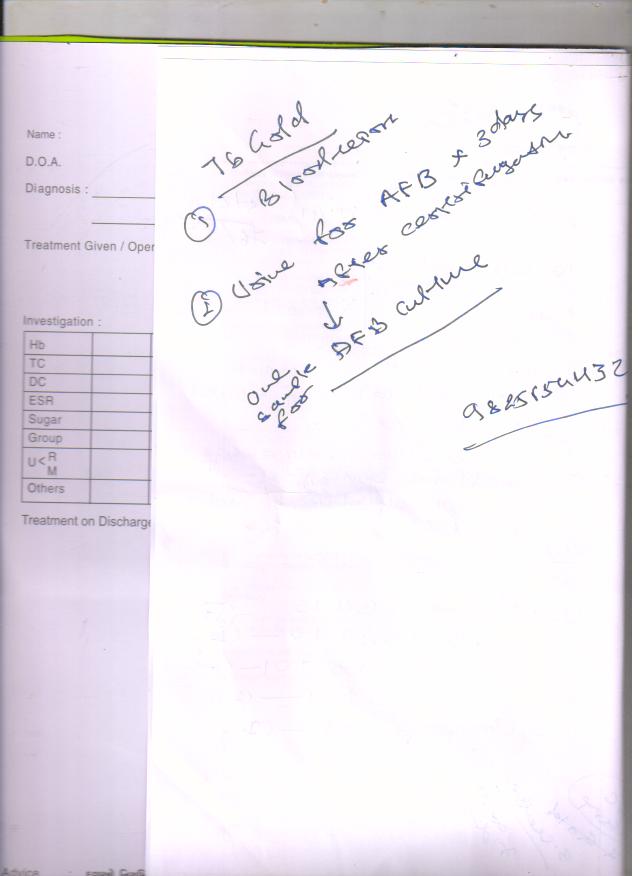 Name :
D.O.A.
Diagnosis :
Treatment Given / Oper
Investigation :
Hb
TC
DC
ESR
Sugar
Group
U< R
M
Others
Treatment on Discharge
Advice :
TB Gold
Blood report
Urine for AFB x 3 days
after centrifugation
↓
one sample for
AFB culture